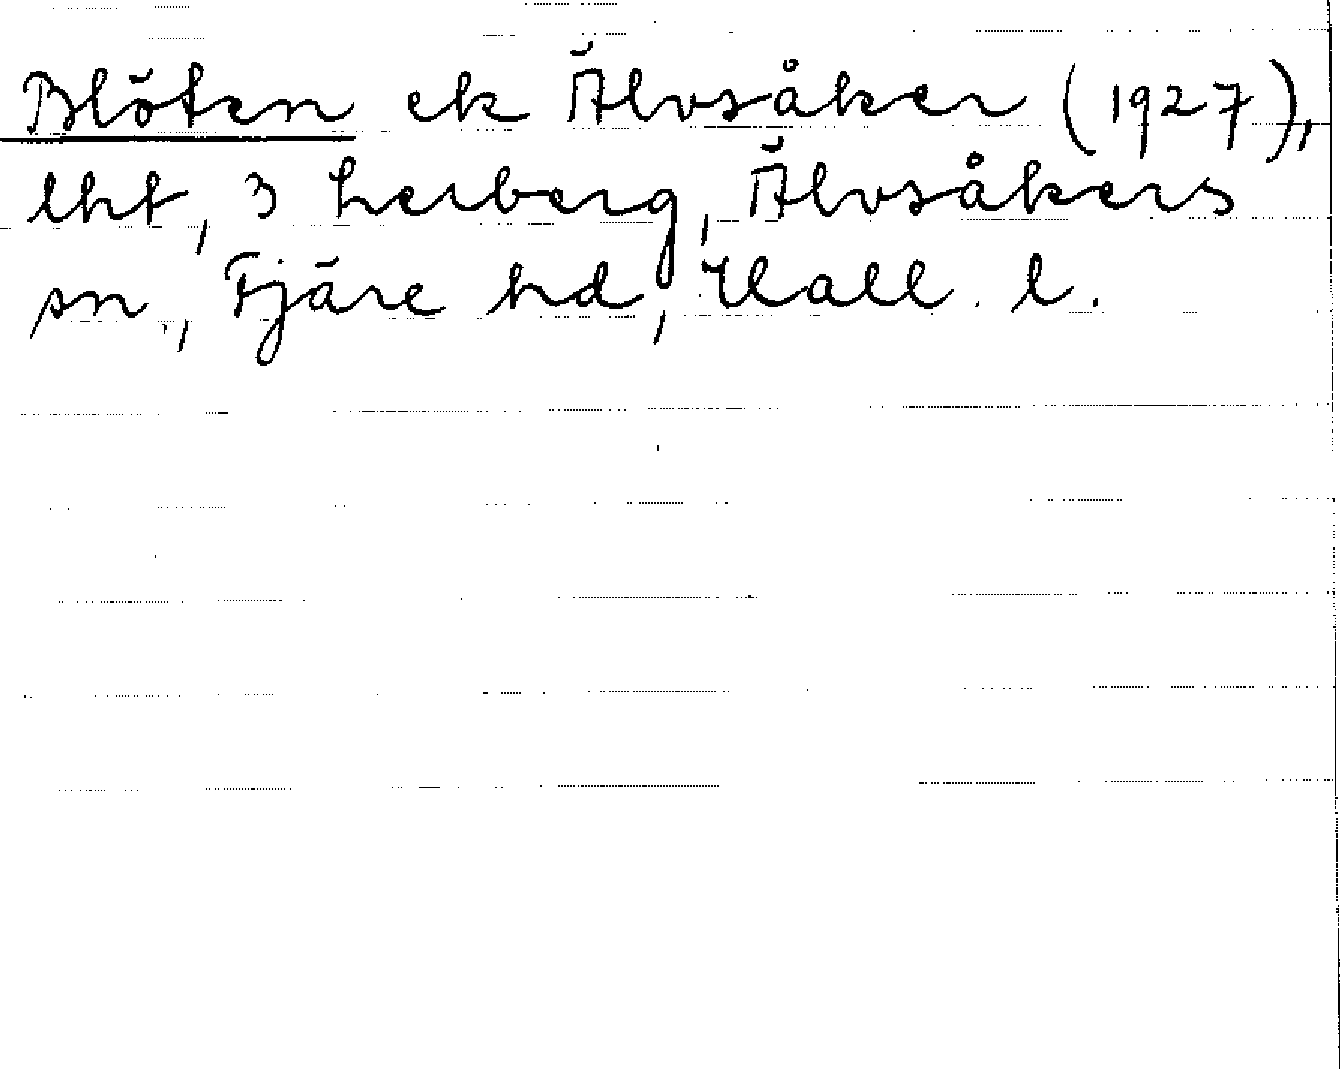 Blöten ek Älvsåker (1927),
lht, 3 Lerberg, Älvsåkers
sn., Fjäre hd, Hall. l.